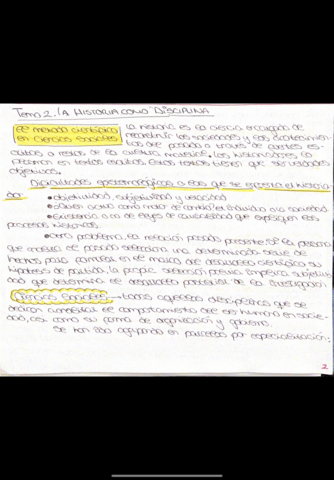 Tema 2. LA HISTORIA COMO DISCIPLINA
El método científico
en ciencias sociales
La historia es la ciencia encargada de
reconstruir las sociedades y los acontecimien-
tos del pasado a través de fuentes es-
critas o restos de la cultura material. Los historiadores lo
plasman en textos escritos. Estos textos tienen que ser verdades
objetivas.
Dificultades epistemológicas a las que se enfrenta el historia-
dor:
• objetividad, subjetividad y veracidad
• Quién actúa como motor de cambio? el individuo o la sociedad
• Existencia o no de leyes de causalidad que expliquen los
procesos históricos.
• Otro problema, la relación pasado presente. Si la persona
que analiza el pasado selecciona una determinada serie de
hechos para ponerlos en el marco del desarrollo cronológico su
hipótesis de partida, la propia selección previa implica subjetivi-
dad que determina el resultado posterior de la investigación
Ciencias Sociales → todas aquellas disciplinas que se
dedican a analizar el comportamiento del ser humano en socie-
dad, así como su forma de organización y gobierno.
Se han ido agrupando en parcelas por especialización:
2